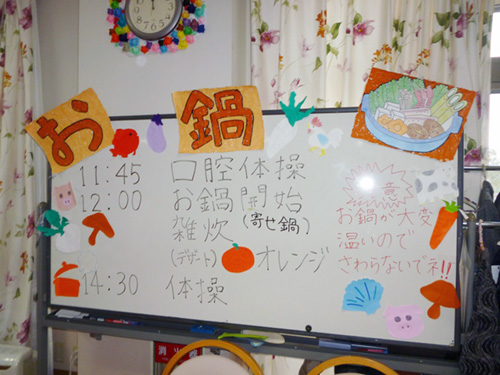 お鍋
11:45 口腔体操
12:00 お鍋開始
雑炊 (寄せ鍋)
(デザート) オレンジ
14:30 体操
意
お鍋が大変
温いので
さわらないでネ!!
消火